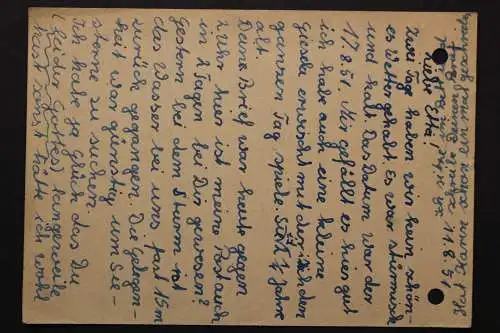 11.8.51
Liebe Etta!
zwei Tage haben wir kein schön-
es Wetter gehabt. Es war stürmisch
und kalt. Das Datum war der
17.8.51. Mir gefällt es hier gut
ich habe auch eine kleine
Gisela erwischt mit der ich den
ganzen Tag spiele. 1/2 Jahre
alt.
Deine Brief war heut gegen
2 Uhr hier ist meine Post auch
in 2 Tagen bei Dir gewesen?
Gestern bei dem Sturm ist
das Wasser bei uns fast 15 m
zurück gegangen. Die Gelegen-
heit war günstig um See-
sterne zu suchen.
Ich habe ja Glück das Du
(bei der Gottes) Langeweile
hast sonst hätte ich wohl